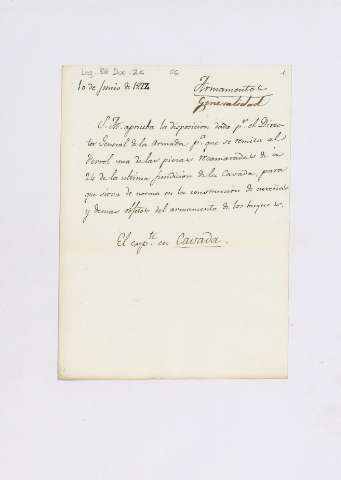 Leg. 88 Doc. 26
1
10 de Junio de 1822
Armamentos
Generalidad
S. M. aprueba la disposicion dada pr. el Direc-
tor General de la Armada pa. que se remita al
Ferrol una de las piezas recamaradas de à
24 de la ultima fundicion de la Cavada, para
que sirva de norma en la construccion de cureñas
y demas objetos del armamento de los buques.
El expte. en Cavada.